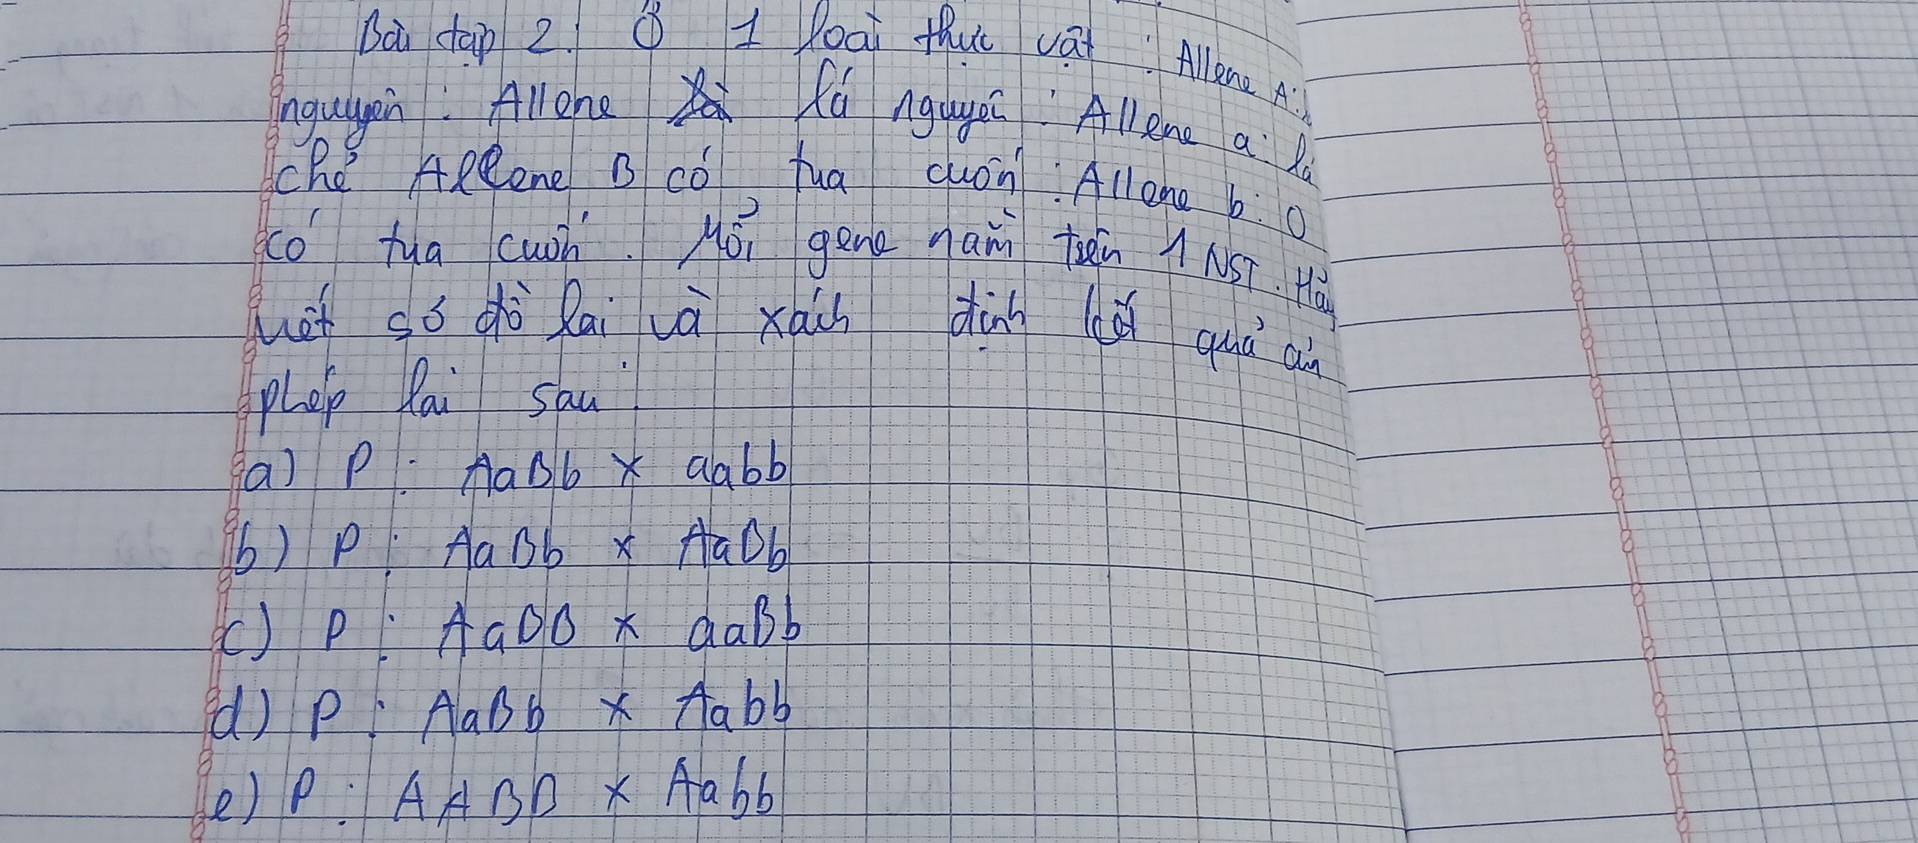 Bài tập 2: Ở 1 loài thực vật: Allene A: lá
nguyên: Allene lá nguyên: Allene a: lá
chẻ Allene B có tua cuốn: Allene b: 0
có tua cuốn. Mỗi gene nằm trên 1 NST. Hãy
viết sơ đồ lai và xách định kết quả các
phép lai sau:
a) P: AaBb x aabb
b) P: AaBb x AaBb
c) P: AaBB x aaBb
d) P: AaBb x Aabb
e) P: AABB x Aabb